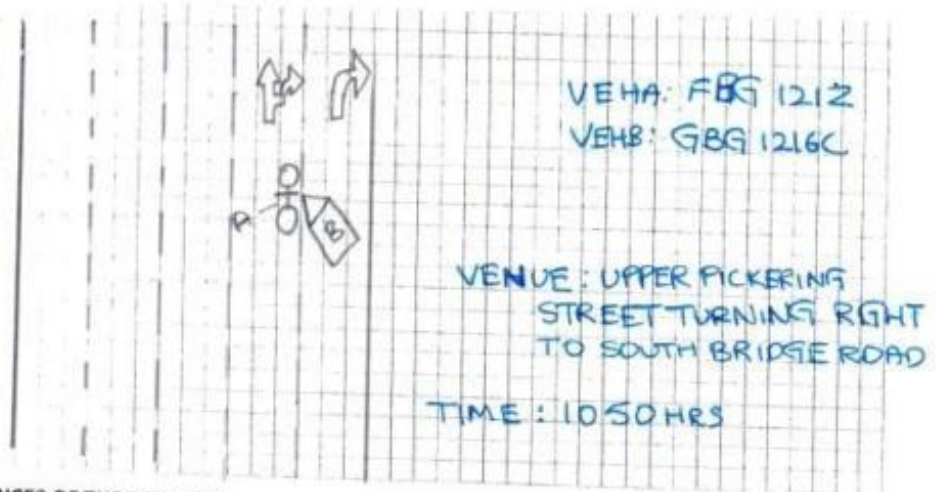 VEHA: FBG 1212
VEHB: GBG 1216C
A
B
VENUE: UPPER PICKERING
STREET TURNING RIGHT
TO SOUTH BRIDGE ROAD
TIME: 1050HRS